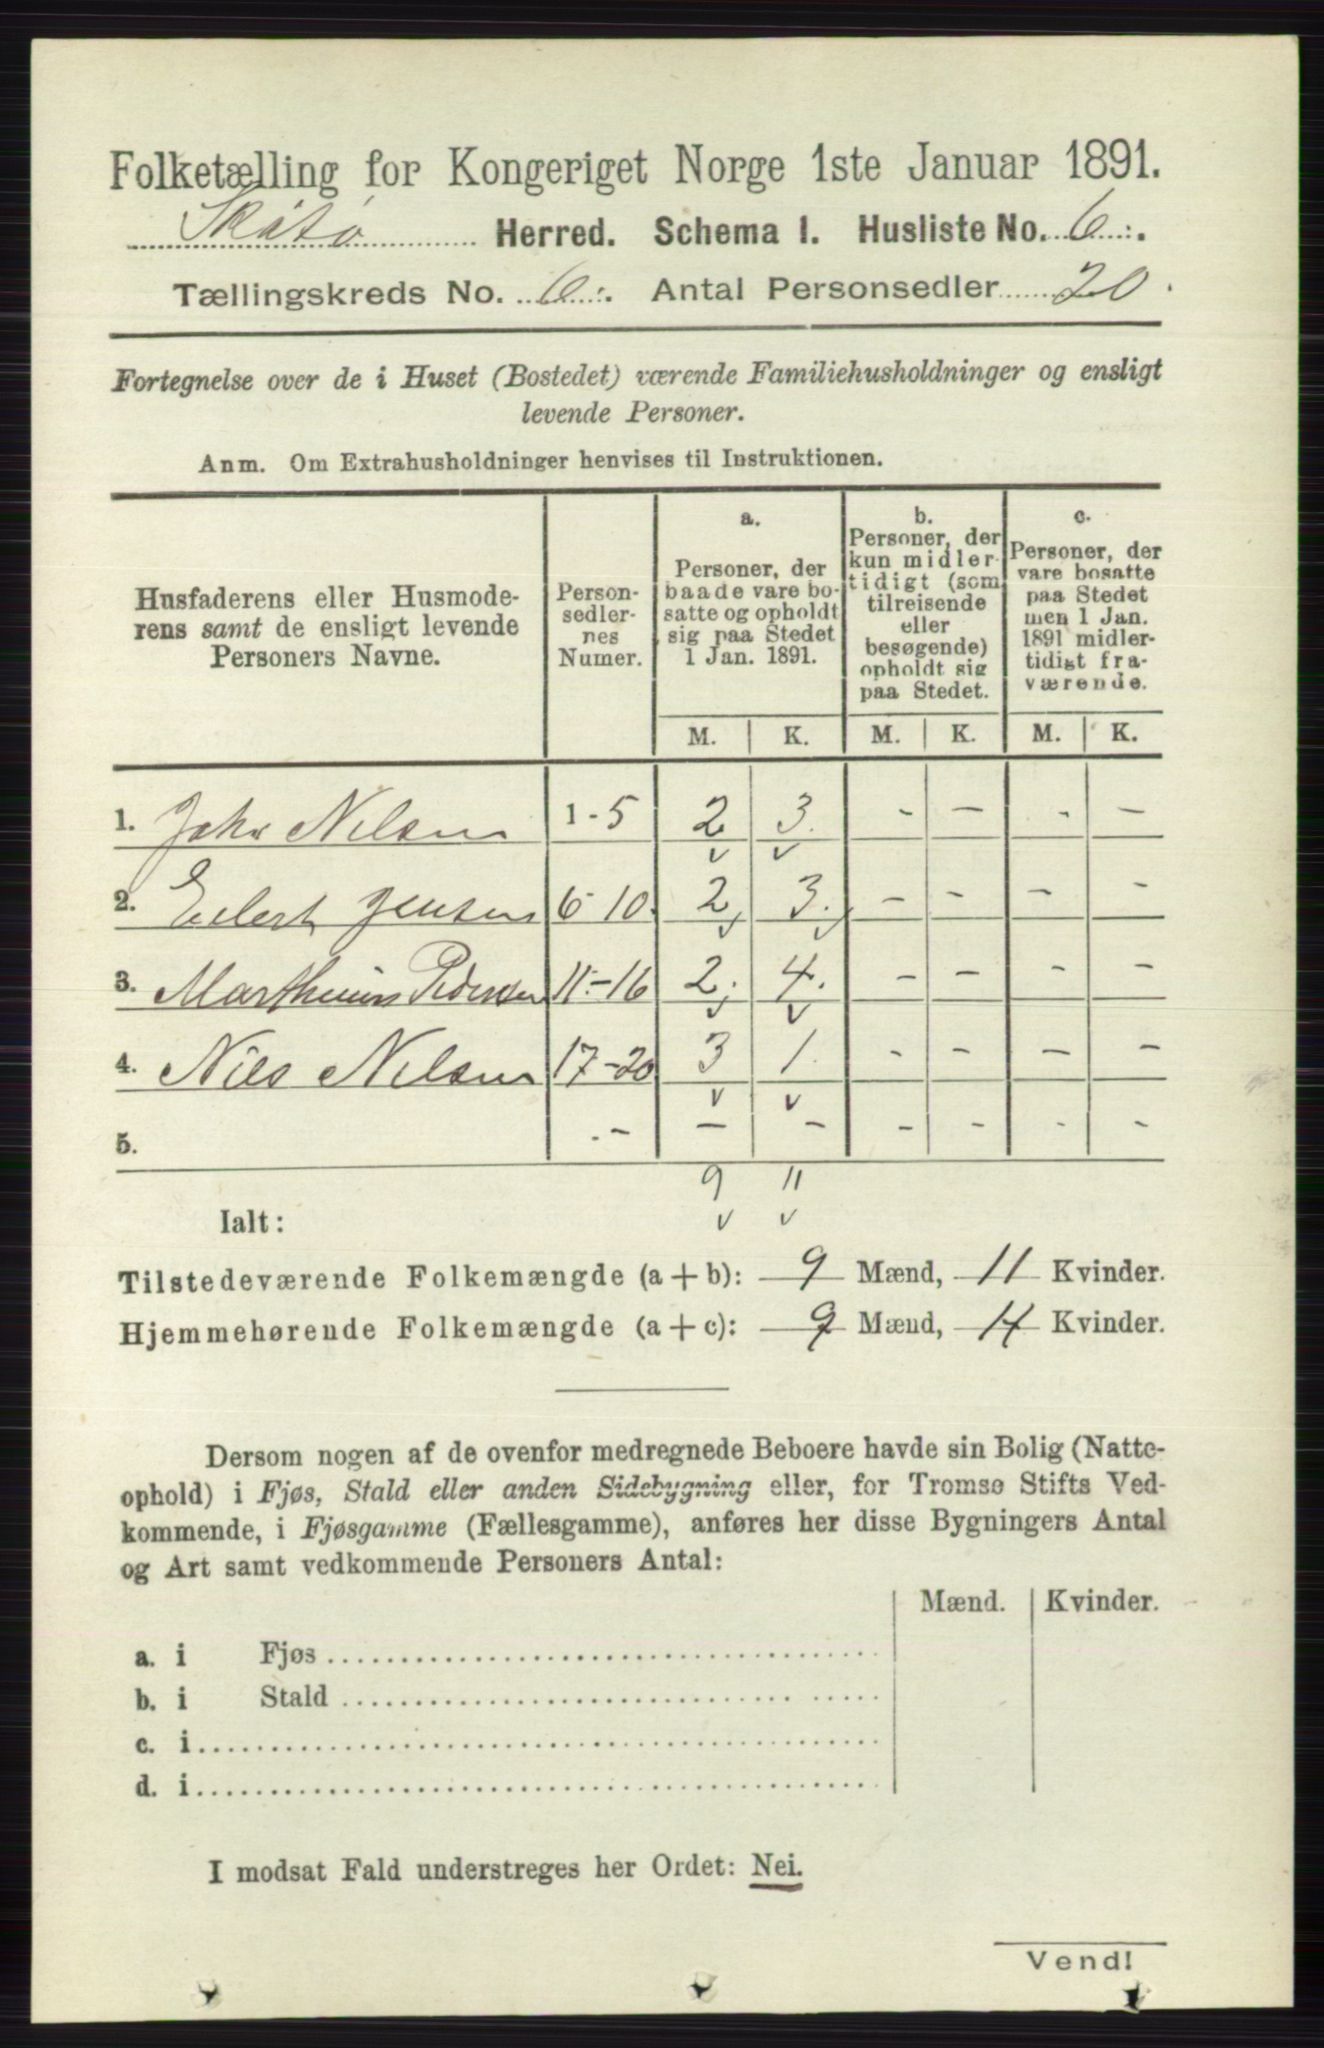 Folketælling for Kongeriget Norge 1ste Januar 1891.
Skåtø Herred. Schema I. Husliste No. 6.
Tællingskreds No. 6. Antal Personsedler 20.
Fortegnelse over de i Huset (Bostedet) værende Familiehusholdninger og ensligt
levende Personer.
Anm. Om Extrahusholdninger henvises til Instruktionen.
Husfaderens eller Husmode-
rens samt de ensligt levende
Personers Navne.
Person-
sedler-
nes
Numer.
a.
Personer, der
baade vare bo-
satte og opholdt
sig paa Stedet
1 Jan. 1891.
b.
Personer, der
kun midler-
tidigt (som
tilreisende
eller
besøgende)
opholdt sig
paa Stedet.
c.
Personer, der
vare bosatte
paa Stedet
men 1 Jan.
1891 midler-
tidigt fra-
værende.
M. K. M. K. M. K.
1. John Nilsen 1-5 2 3. - - - -
2. Eilert Jensen 6-10. 2, 3. - - - -
3. Marthinius Pedersen 11-16 2. 4. - - - -
4. Nils Nilsen 17-20 3 1. - - - -
5. - - - - - - -
9 11
Ialt:
Tilstedeværende Folkemængde (a + b): 9 Mænd, 11 Kvinder.
Hjemmehørende Folkemængde (a + c): 9 Mænd, 11 Kvinder.
Dersom nogen af de ovenfor medregnede Beboere havde sin Bolig (Natte-
ophold) i Fjøs, Stald eller anden Sidebygning eller, for Tromsø Stifts Ved-
kommende, i Fjøsgamme (Fællesgamme), anføres her disse Bygningers Antal
og Art samt vedkommende Personers Antal:
Mænd. Kvinder.
a. i Fjøs
b. i Stald
c. i
d. i
I modsat Fald understreges her Ordet: Nei.
Vend!